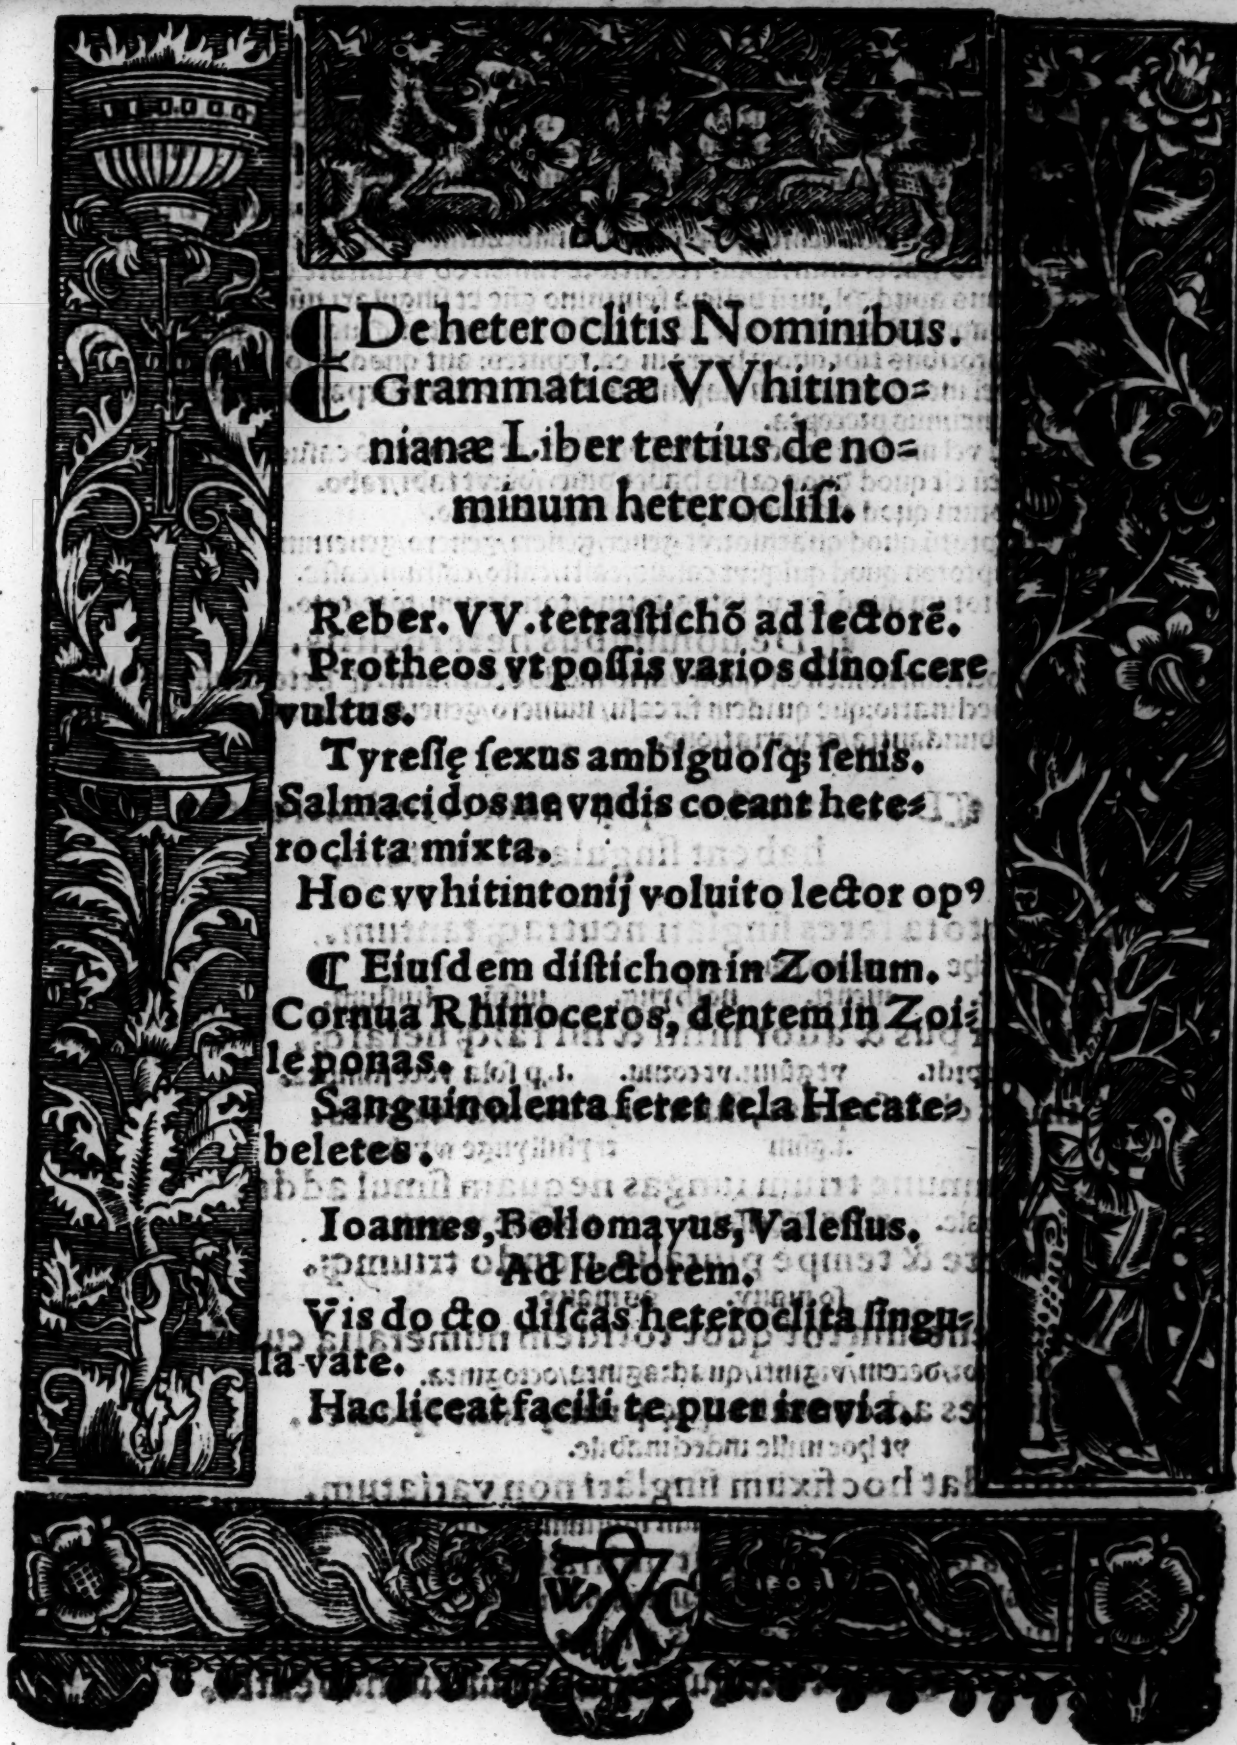 ⸿ De heteroclitis Nominibus.
⸿ Grammaticæ VVhitinto⸗
nianæ Liber tertius de no⸗
minum heteroclisi.
Reber. VV. tetraſtichō ad lectorē.
Protheos vt poſſis varios dinoſcere
vultus.
Tyreſię ſexus ambiguoſq; ſenis.
Salmacidos ne vndis coeant hete⸗
roclita mixta.
Hoc vvhitintonij voluito lector opꝰ
⸿ Eiuſdem diſtichon in Zoilum.
Cornua Rhinoceros, dentem in Zoi⸗
le ponas.
Sanguinolenta feret tela Hecate⸗
beletes.
Ioannes, Bellomayus, Valeſius.
Ad lectorem.
Vis docto diſcas heteroclita ſingu⸗
la vate.
Hac liceat facili te puer ire via.
W. C